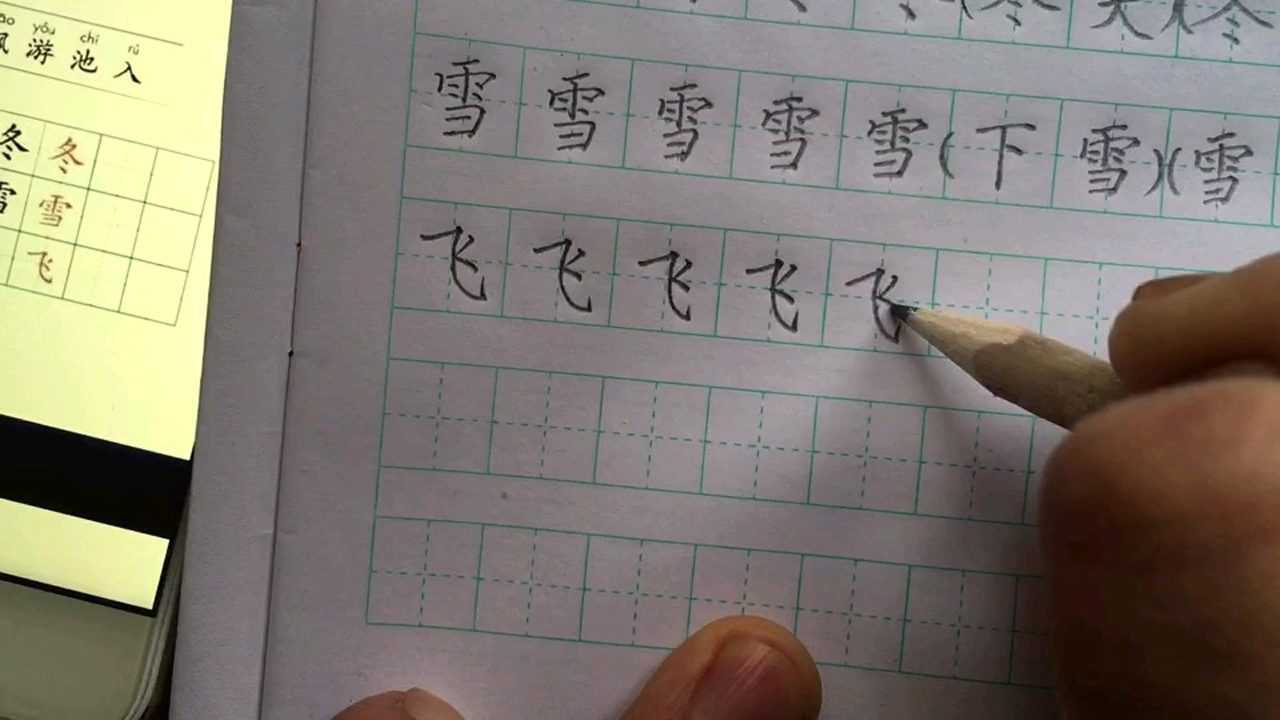 yóu chí rù
游池入
冬冬
雪
飞
冬(冬天)(冬
雪雪雪雪雪(下雪)(雪
飞飞飞飞飞